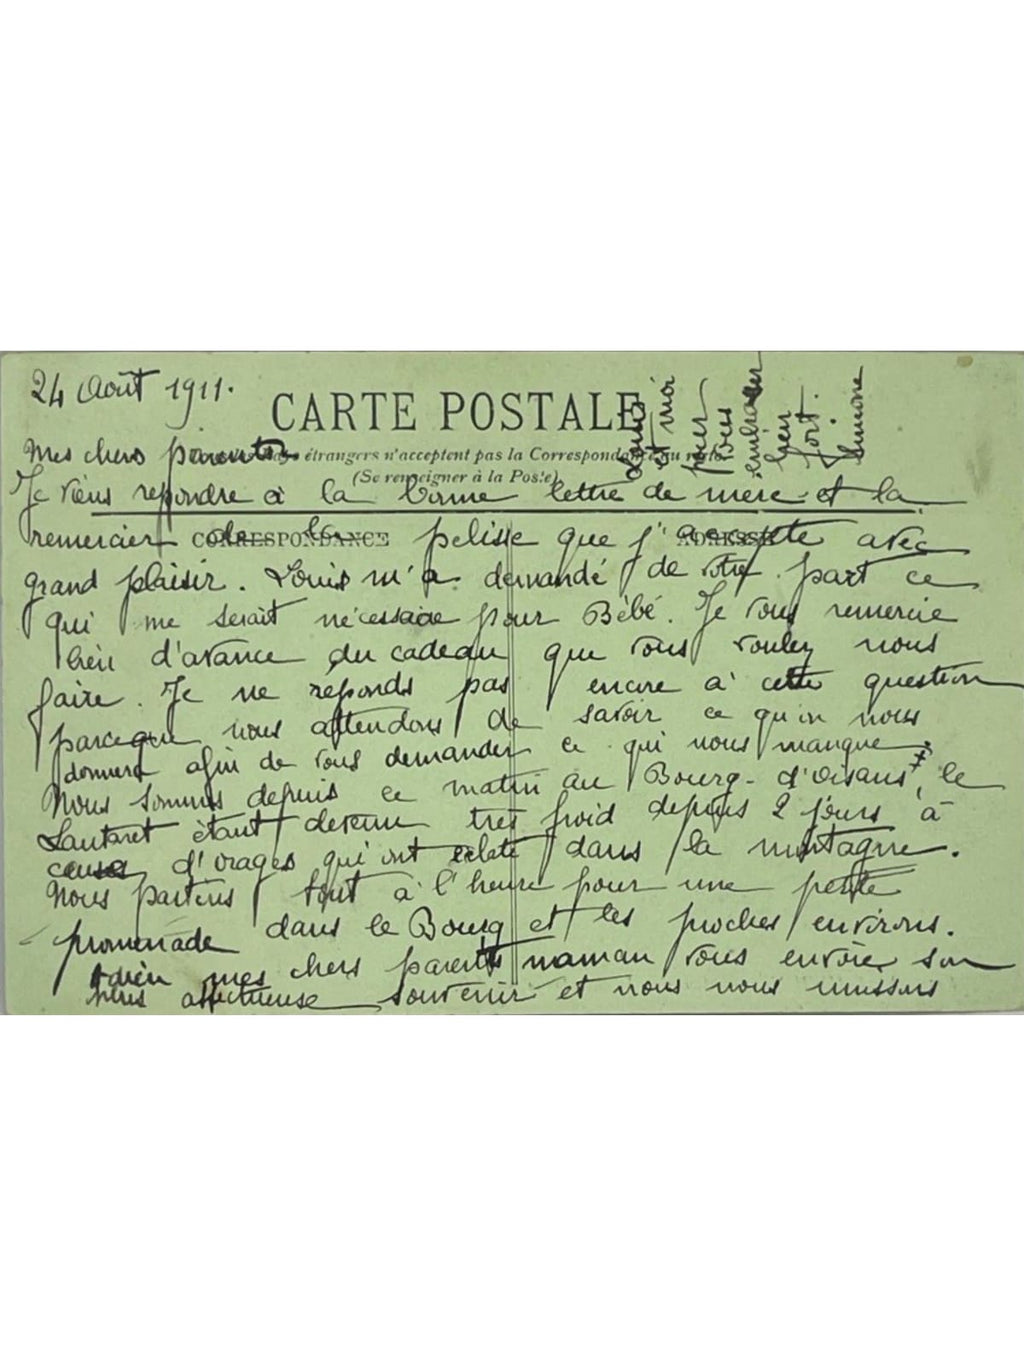 24 Août 1911.
CARTE POSTALE
Mes chers parents
étrangers n'acceptent pas la Correspondance au recto.
(Se renseigner à la Poste)
Je viens repondre à la bonne lettre de mère et la
CORRESPONDANCE
ADRESSE
remercier de la pelisse que j'accepte avec
grand plaisir. Louis m'a demandé de votre part ce
qui me serait nécessaire pour Bébé. Je vous remercie
bien d'avance du cadeau que vous voulez nous
faire. Je ne réponds pas encore à cette question
parceque nous attendons de savoir ce qu'on nous
donnera afin de vous demander ce qui nous manque
Nous sommes depuis ce matin au Bourg-d'Oisans, le
Lautaret étant devenu très froid depuis 2 jours à
cause d'orages qui ont éclaté dans la montagne.
Nous partons tout à l'heure pour une petite
promenade dans le Bourg et les proches environs.
Adieu mes chers parents maman vous envoie son
affectueuse souvenir et nous nous unissons
Louis
et moi
pour
vous
embrasser
bien
fort.
Simone